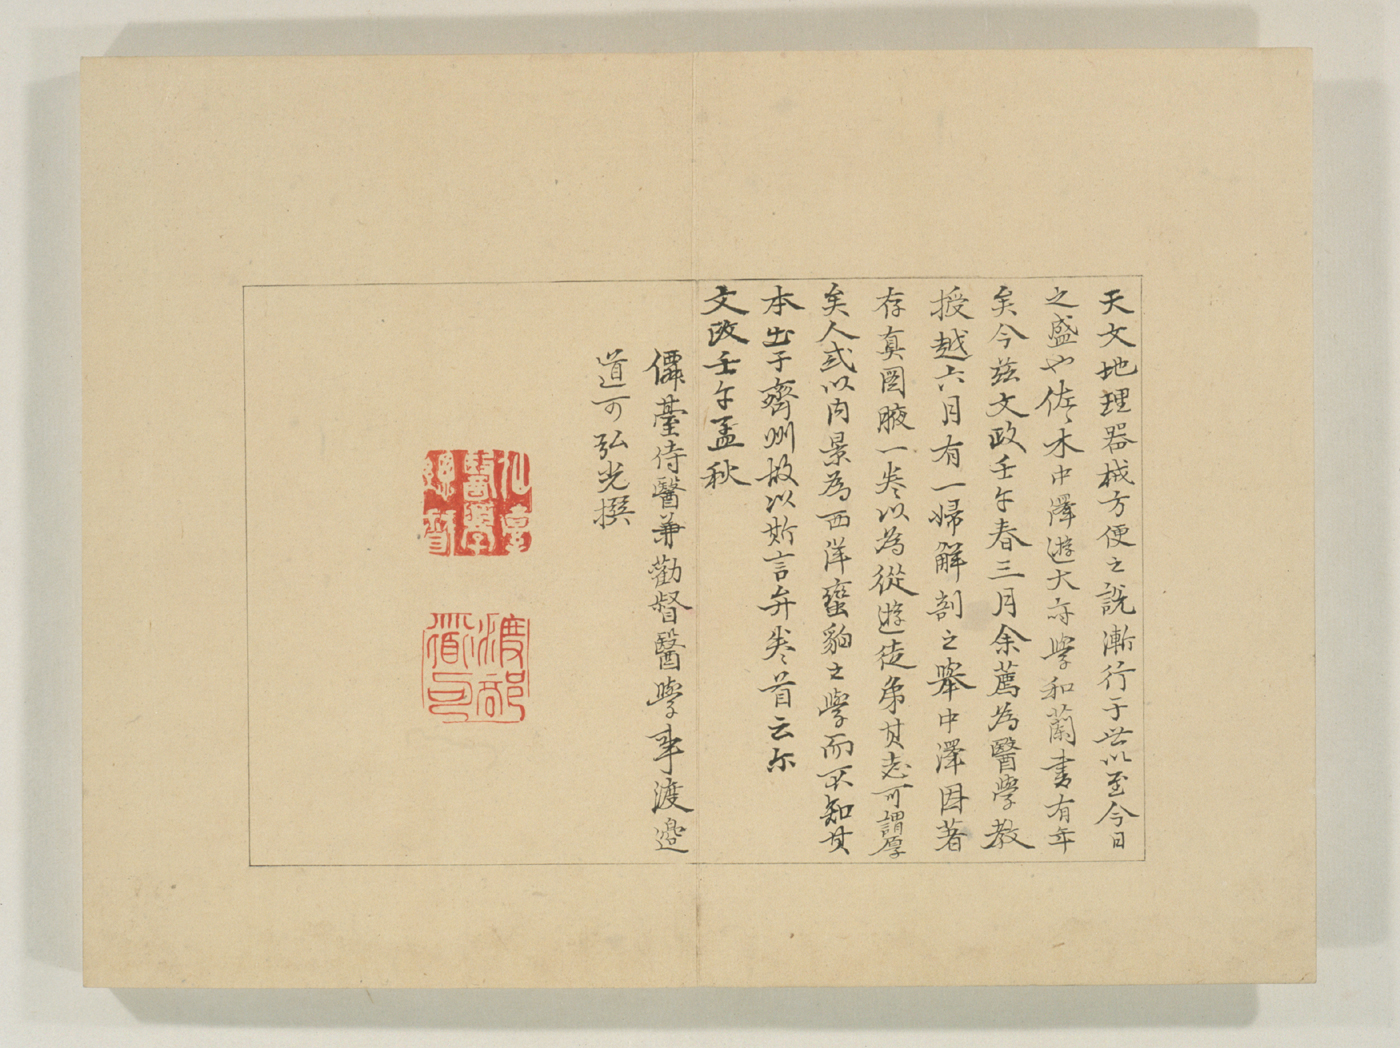 天文地理器械方便之説漸行于世以至今日
之盛也佐々木中澤遊大府學和蘭書有年
矣今茲文政壬午春三月余薦為醫學教
授越六月有一婦解剖之舉中澤因著
存真圖腋一巻以為從遊徒弟其志可謂厚
矣人或以内景為西洋蠻貊之學而不知其
本出于齊州故以斯言弁巻首云尓
文政壬午孟秋
僊臺侍醫兼勸督醫學事渡邉
道可弘光撰
仙臺
醫學
渡部